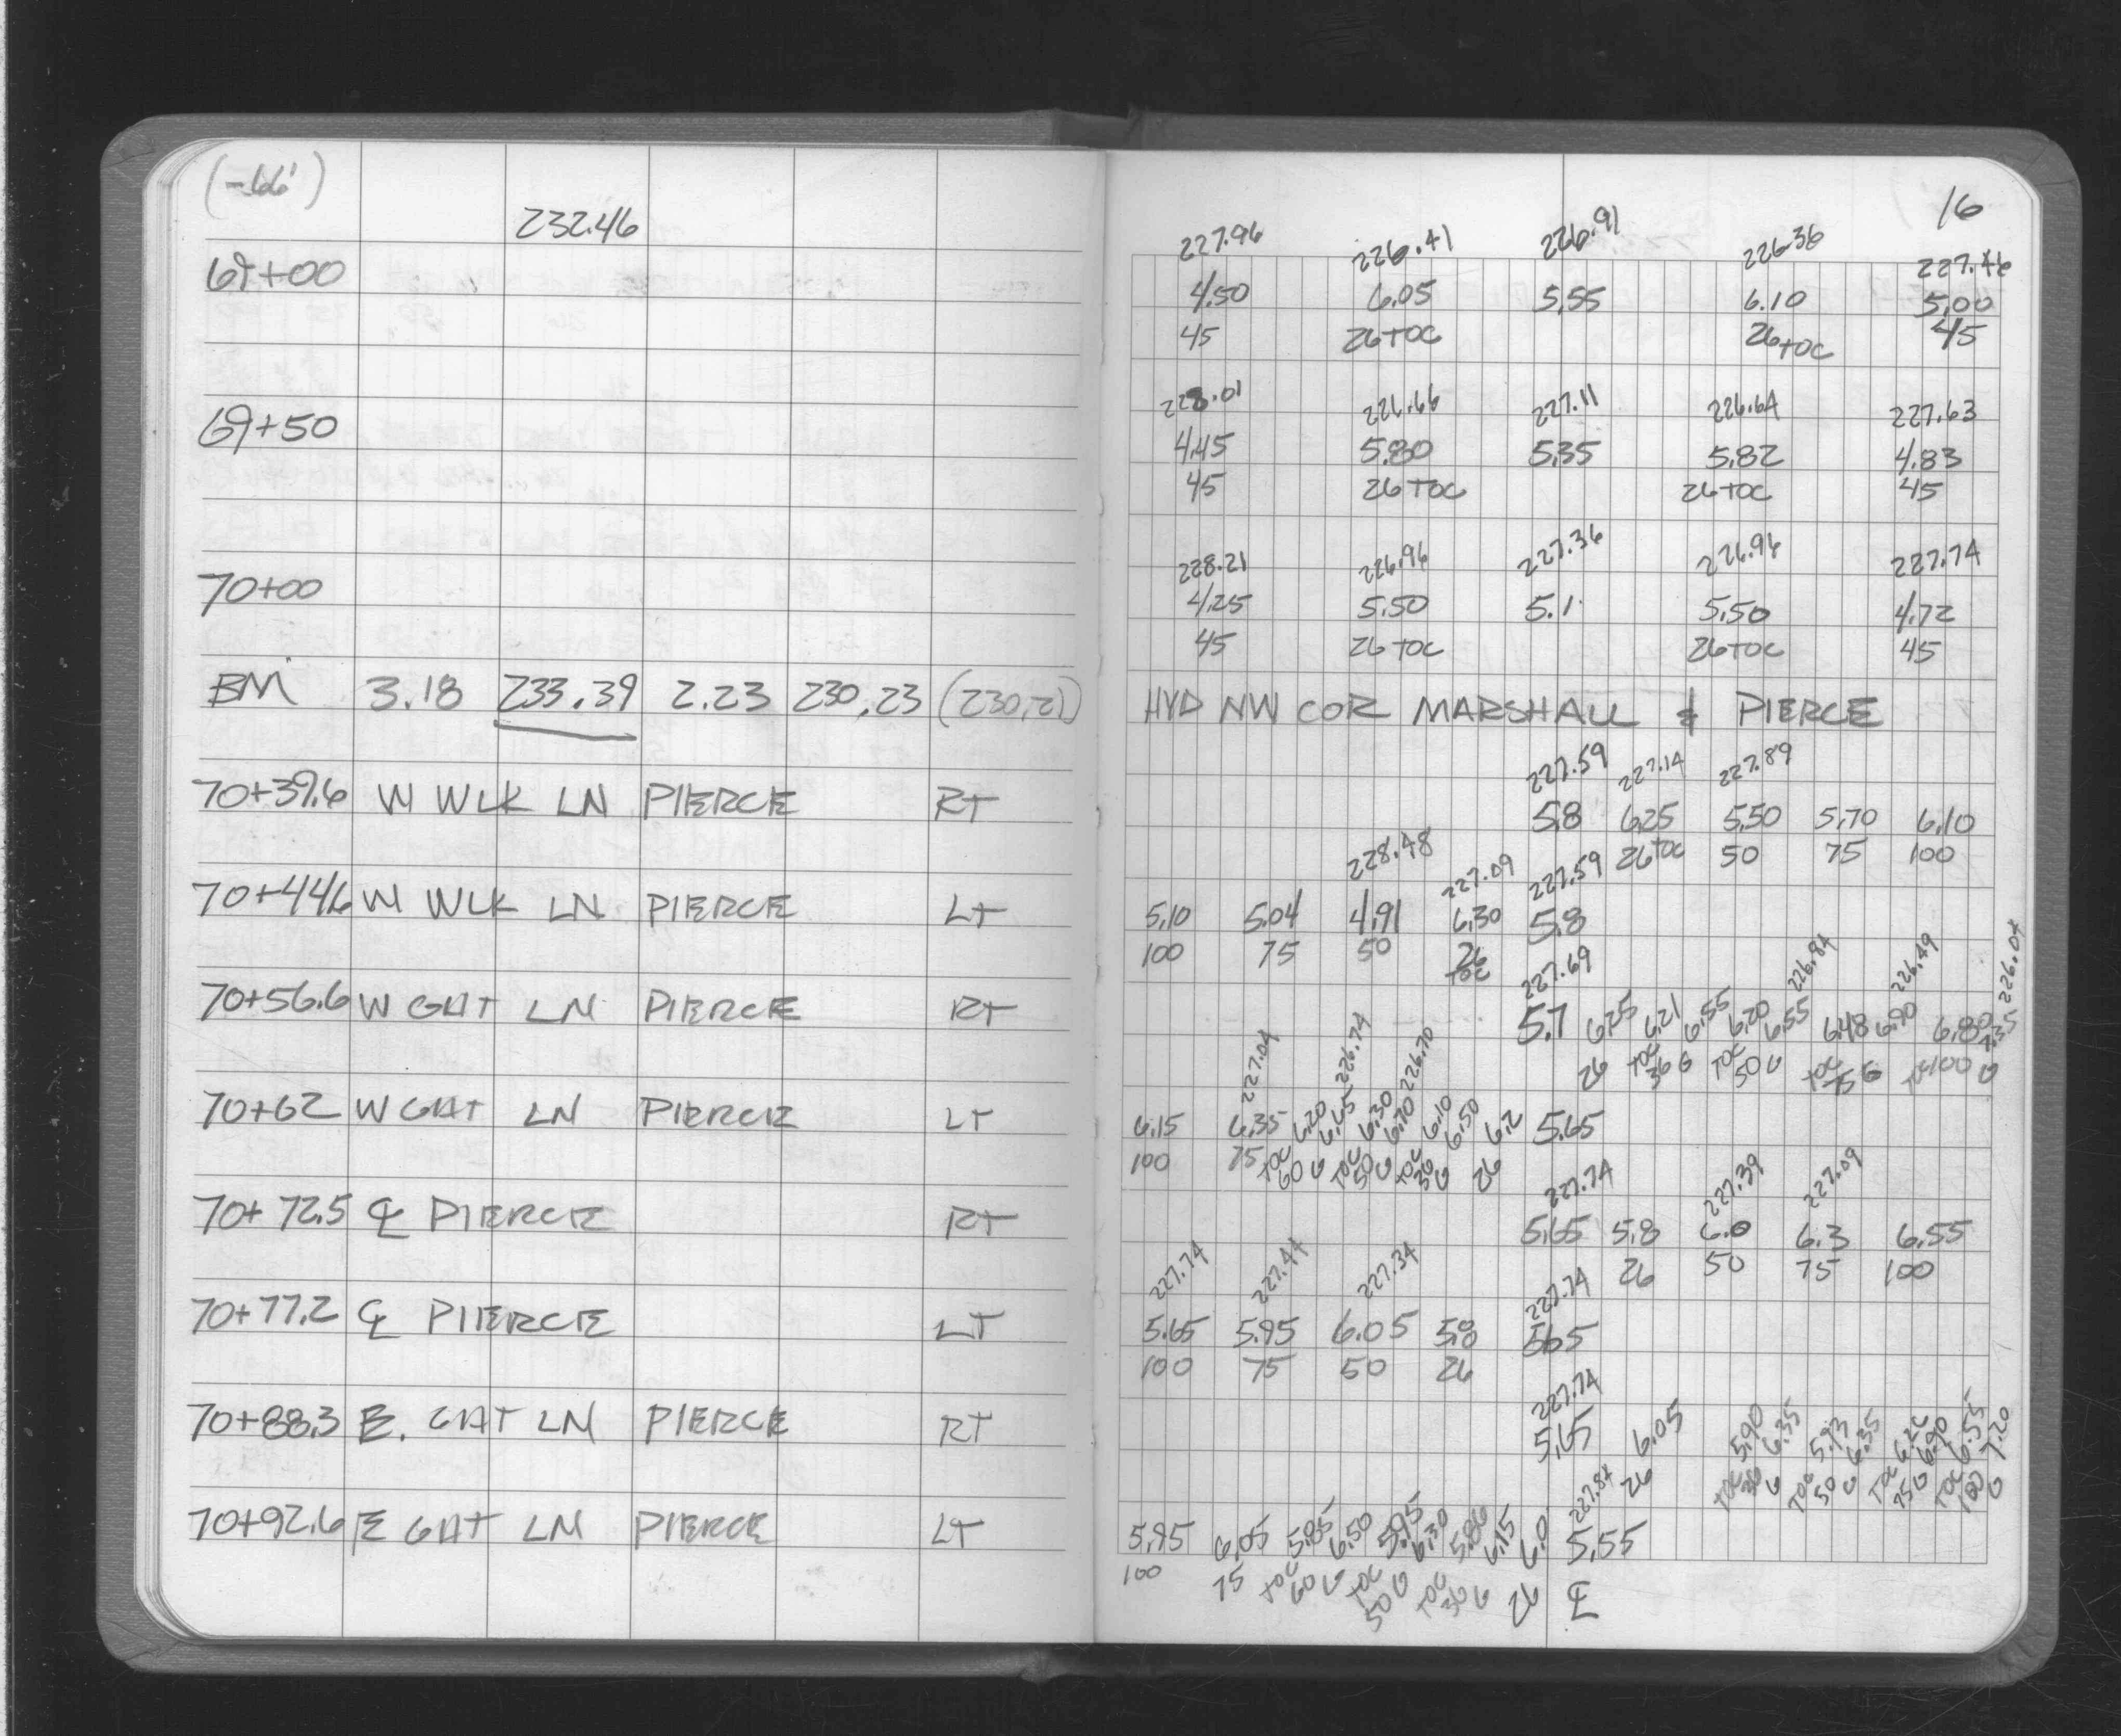 (-66')
232.46
69+00
69+50
70+00
BM 3.18 233.39 2.23 230.23 (230.21)
70+39.6 W WLK LN PIERCE RT
70+44.6 W WLK LN PIERCE LT
70+56.6 W GUT LN PIERCE RT
70+62 W GUT LN PIERCE LT
70+72.5 ℄ PIERCE RT
70+77.2 ℄ PIERCE LT
70+88.3 E. GUT LN PIERCE RT
70+92.6 E GUT LN PIERCE LT
16
227.96 226.41 226.91 226.36 227.46
4.50 6.05 5.55 6.10 5.00
45 26 TOC 26 TOC 45
228.01 226.66 227.11 226.64 227.63
4.45 5.80 5.35 5.82 4.83
45 26 TOC 26 TOC 45
228.21 226.96 227.36 226.96 227.74
4.25 5.50 5.1 5.50 4.72
45 26 TOC 26 TOC 45
HYD NW COR MARSHALL & PIERCE
227.59 227.14 227.89
5.8 6.25 5.50 5.70 6.10
26 TOC 50 75 100
228.48 227.09 227.59
5.10 5.04 4.91 6.30 5.8
100 75 50 26 TOC
227.69 226.84 226.49 226.04
5.7 6.25 6.21 6.55 6.20 6.55 6.48 6.90 6.80 7.35
26 TOC 36 G TOC 50 G TOC 75 G TOC 100 G
227.04 226.74 226.70
6.15 6.35 6.20 6.65 6.30 6.70 6.10 6.50 6.2 5.65
100 75 TOC 60 G TOC 50 G TOC 36 G 26
227.74 227.39 227.09
5.65 5.8 6.0 6.3 6.55
26 50 75 100
227.74 227.44 227.34 227.74
5.65 5.95 6.05 5.8 5.65
100 75 50 26
227.74
5.65 6.05 5.90 6.35 5.93 6.35 6.26 6.90 6.55 7.20
26 TOC 36 G TOC 50 G TOC 75 G TOC 100 G
227.84
5.95 6.05 5.85 6.50 5.95 6.30 5.86 6.15 6.0 5.55
100 75 TOC 60 G TOC 50 G TOC 36 G 26 ℄